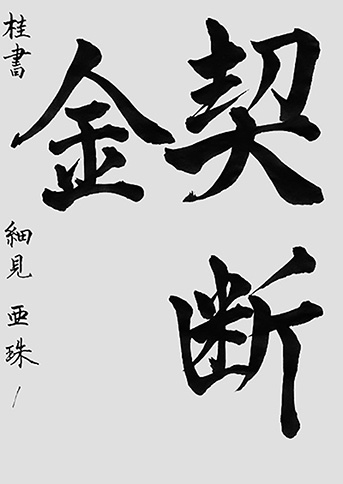 契断
金
桂書 細見 亜珠